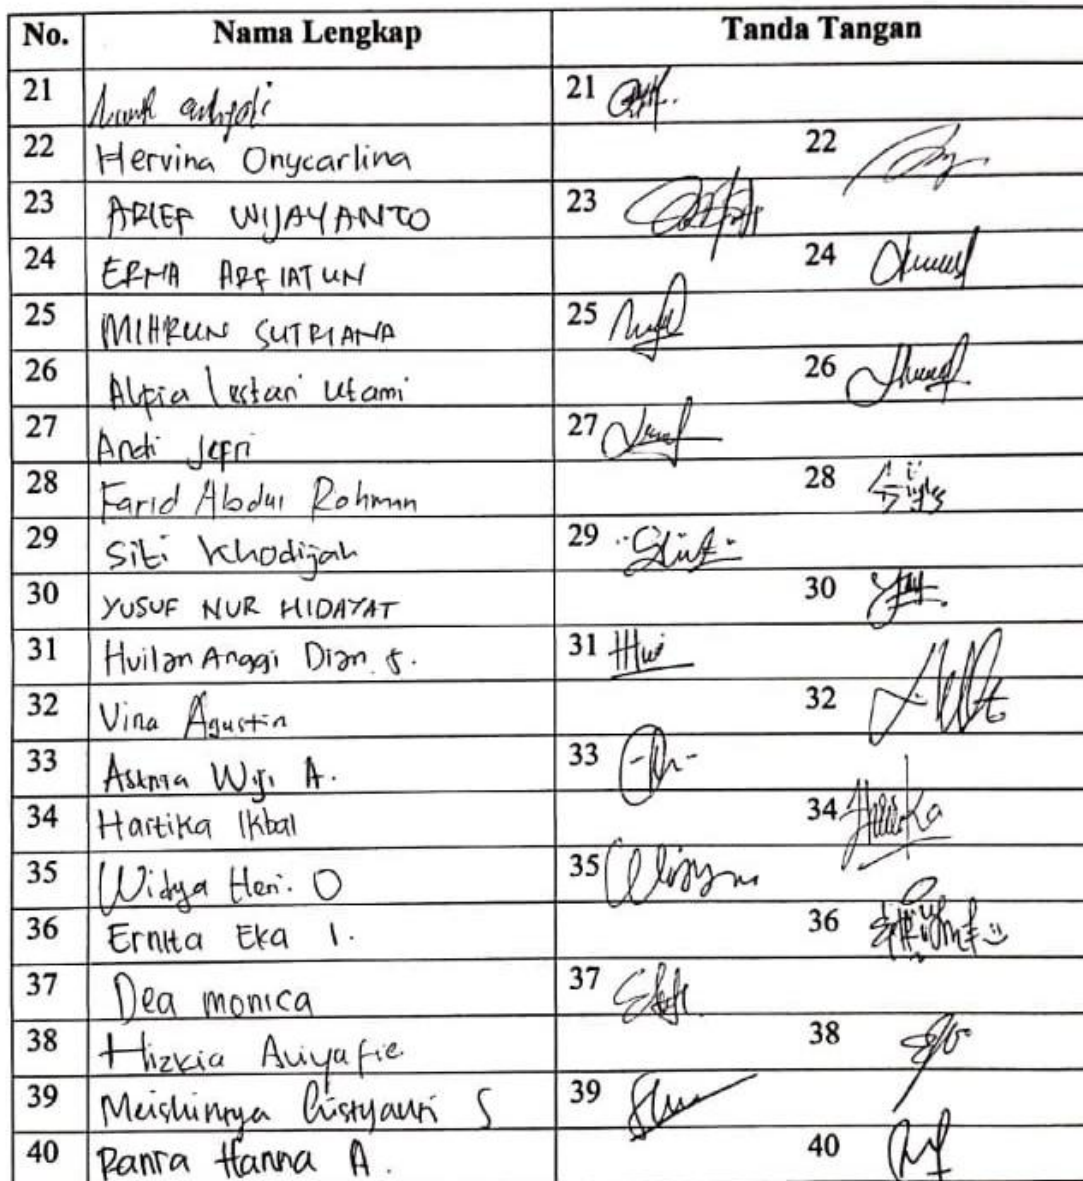 No. Nama Lengkap Tanda Tangan
21 21
22 Hervina Onycarlina 22
23 ARIEF WIJAYANTO 23
24 ERMA ARFIATUN 24
25 MIHRUN SUTRIANA 25
26 Alpia Lestari Utami 26
27 Andi Jefri 27
28 Farid Abdur Rohman 28
29 Siti Khodijah 29
30 YUSUF NUR HIDAYAT 30
31 Huilan Anggi Dian S. 31
32 Vina Agustin 32
33 Wiji A. 33
34 Hartika Ikbal 34
35 Widya Heri. O 35
36 Ernita Eka I. 36
37 Dea monica 37
38 Hizkia 38
39 S 39
40 Hanna A. 40